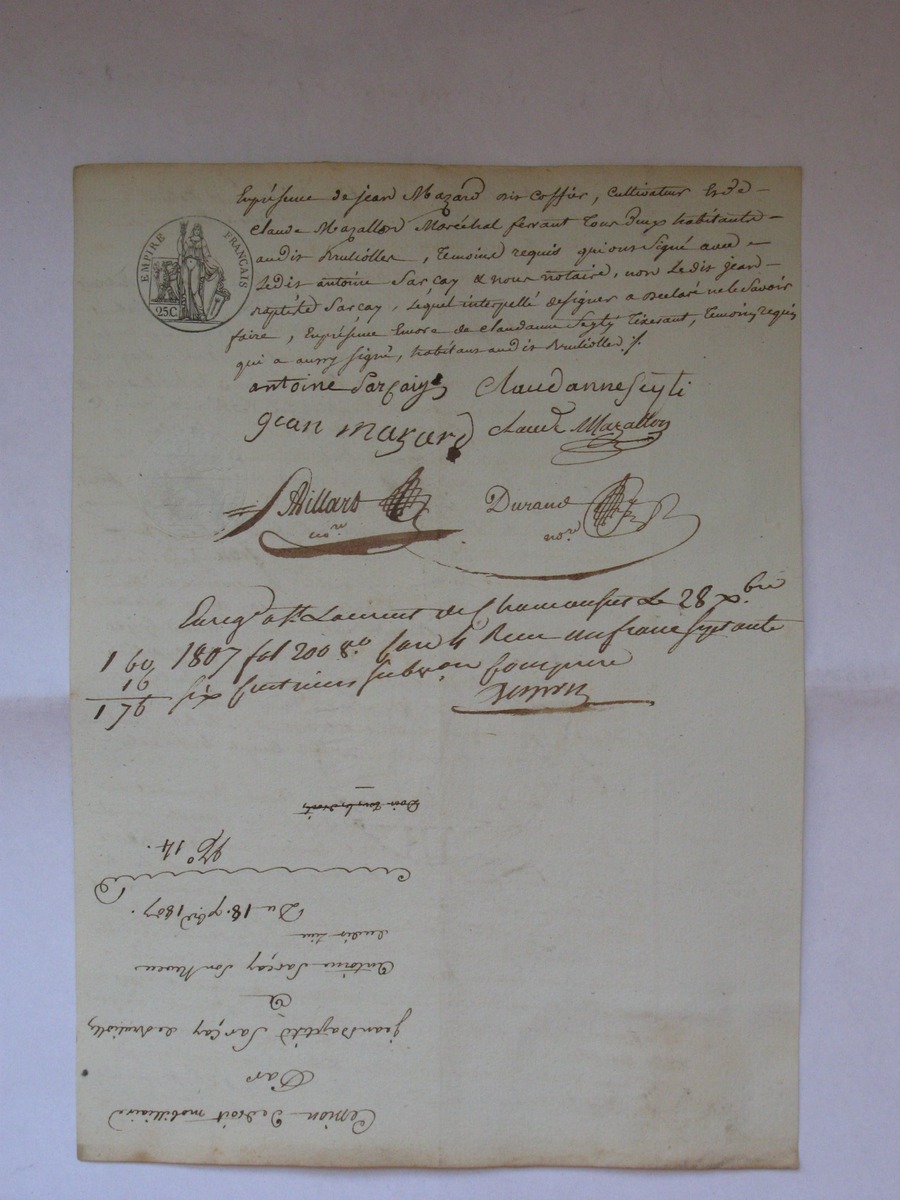 EMPIRE FRANÇAIS
25C.
Enprésence de jean Mazard dit Coffier, Cultivateur Et de
Claude Mazallon Maréchal ferrant Tous deux habitants
audit Bruliolles, Temoins requis qui ont Signé avec
Ledit antoine Sarçay & nous notaire, non Ledit jean
baptiste Sarçay, Lequel interpellé designer a Declaré ne le Savoir
faire, Enprésence Encore de Claudanne Seyti Tixerant, temoins requis
qui a aussy signé, habitant audit Brulliolles ./.
antoine Sarçaiy Claudanne Seyti
jean mazard Claude Mazallon
Billard Durand
no.re no.re
Enreg.é à St Laurent de Chamousset Le 28 x.bre
1 60 1807 fol 200 R.o Case 4 Recu un franc Septante
16 six Centimes Subv.on Comprise
1 76
Doit tous les droits
N.o 14.
Du 18. 9bre 1807.
dudit lieu
Antoine Sarçay Son Neveu
A
jean Baptiste Sarçay de Brulioles
Par
Cession De droit mobilliaire